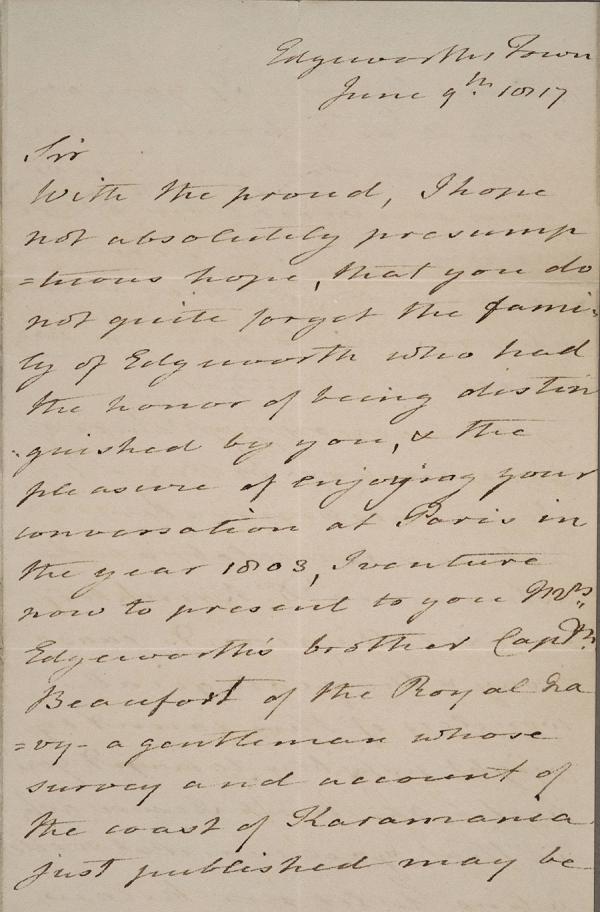 Edgeworths Town
June 9th 1817
Sir
With the proud, I hope
not absolutely presump
=tuous hope, that you do
not quite forget the fami-
ly of Edgeworth who had
the honor of being distin
-guished by you, & the
pleasure of enjoying your
conversation at Paris in
the year 1803, I venture
now to present to you Mrs
Edgeworth's brother Captn
Beaufort of the Royal Na
=vy - a gentleman whose
survey and account of
the coast of Karamania
just published may be